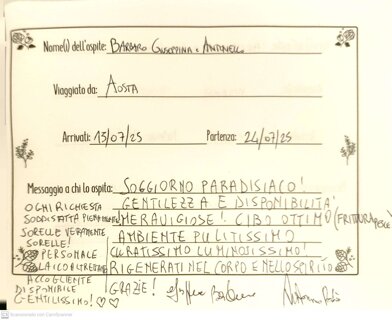 Nome(i) dell'ospite: BARBARO GIUSEPPINA E ANTONELLO
Viaggiato da: AOSTA
Arrivati: 13/07/25 Partenza: 24/07/25
Messaggio a chi lo ospita: SOGGIORNO PARADISIACO!
GENTILEZZA E DISPONIBILITÀ
MERAVIGIOSE! CIBO OTTIMO (FRITTURA PESCE)
AMBIENTE PULITISSIMO
CURATISSIMO LUMINOSISSIMO!
RIGENERATI NEL CORPO E NELLO SPIRITO
GRAZIE!
OGNI RICHIESTA
SODDISFATTA PIENAMENTE
SORELLE VERAMENTE
SORELLE!
PERSONALE
LAICO OLTRETTUTTO
ACCOGLIENTE
DISPONIBILE
GENTILISSIMO! ♡♡
Scannerizzato con CamScanner